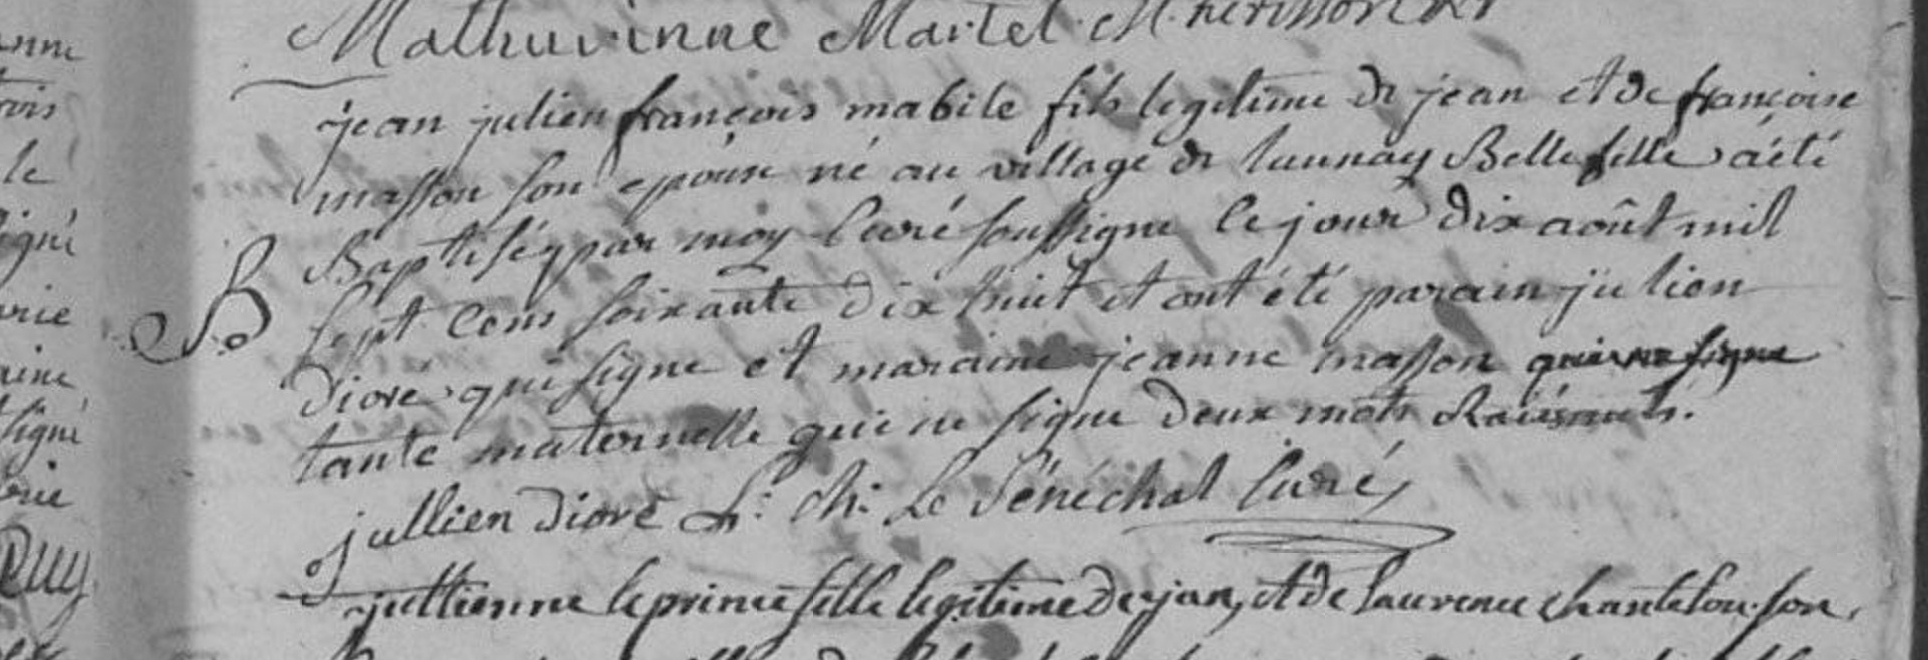 Mathurinne Martel M. herisson
jean julien françois mabile fils legitime de jean et de françoise
masson son epouse né au village de launay Bellefille a été
B Baptisé par moy Curé soussigné le jour dix août mil
sept cens soixante dix huit et ont été parain julien
diore qui signe et maraine jeanne masson qui ne signe
tante maternelle qui ne signe deux mots Raiés nuls.
jullien dioré f: ch: Le Sénéchal Curé
jullienne leprince fille legitime de jan, et de laurence chantelou son